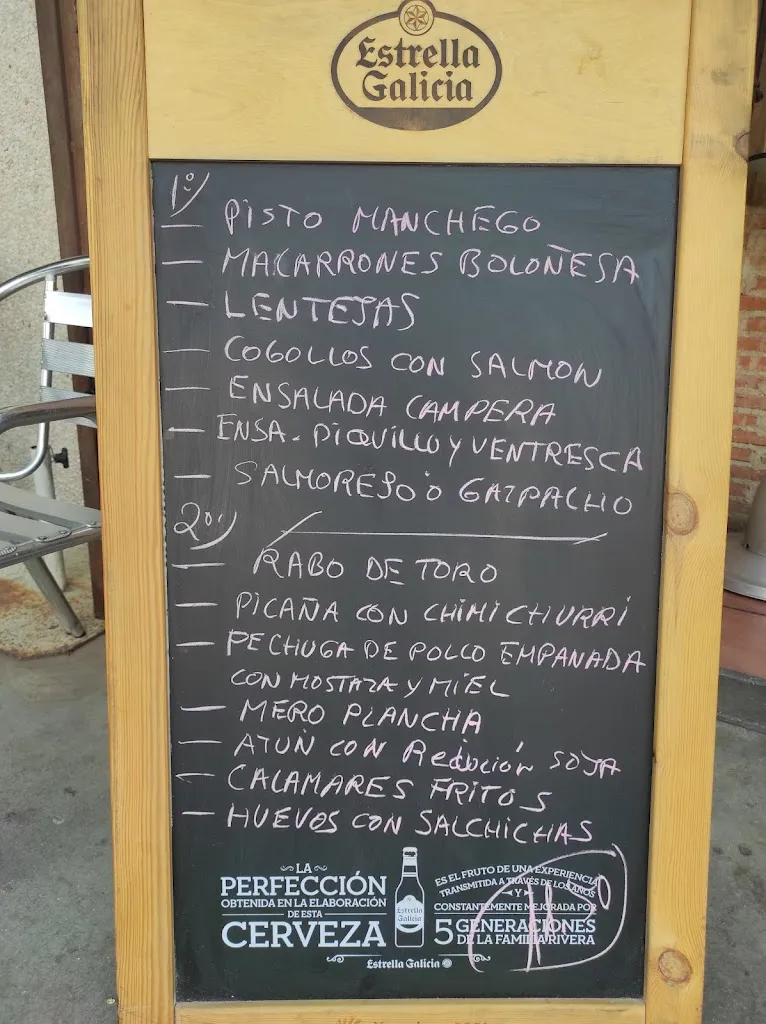 Estrella
Galicia
1º
— PISTO MANCHEGO
— MACARRONES BOLOÑESA
— LENTEJAS
— COGOLLOS CON SALMON
— ENSALADA CAMPERA
— ENSA. PIQUILLO Y VENTRESCA
— SALMOREJO O GAZPACHO
2º
— RABO DE TORO
— PICAÑA CON CHIMICHURRI
— PECHUGA DE POLLO EMPANADA
CON MOSTAZA Y MIEL
— MERO PLANCHA
— ATÚN CON Reducción SOJA
— CALAMARES FRITOS
— HUEVOS CON SALCHICHAS
LA
PERFECCIÓN
OBTENIDA EN LA ELABORACIÓN
DE ESTA
CERVEZA
Estrella
Galicia
ES EL FRUTO DE UNA EXPERIENCIA
TRANSMITIDA A TRAVÉS DE LOS AÑOS
Y
CONSTANTEMENTE MEJORADA POR
5 GENERACIONES
DE LA FAMILIA RIVERA
Estrella Galicia